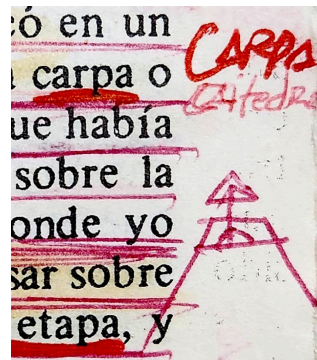 có en un
carpa o
ue había
sobre la
onde yo
sar sobre
etapa, y
CARPA